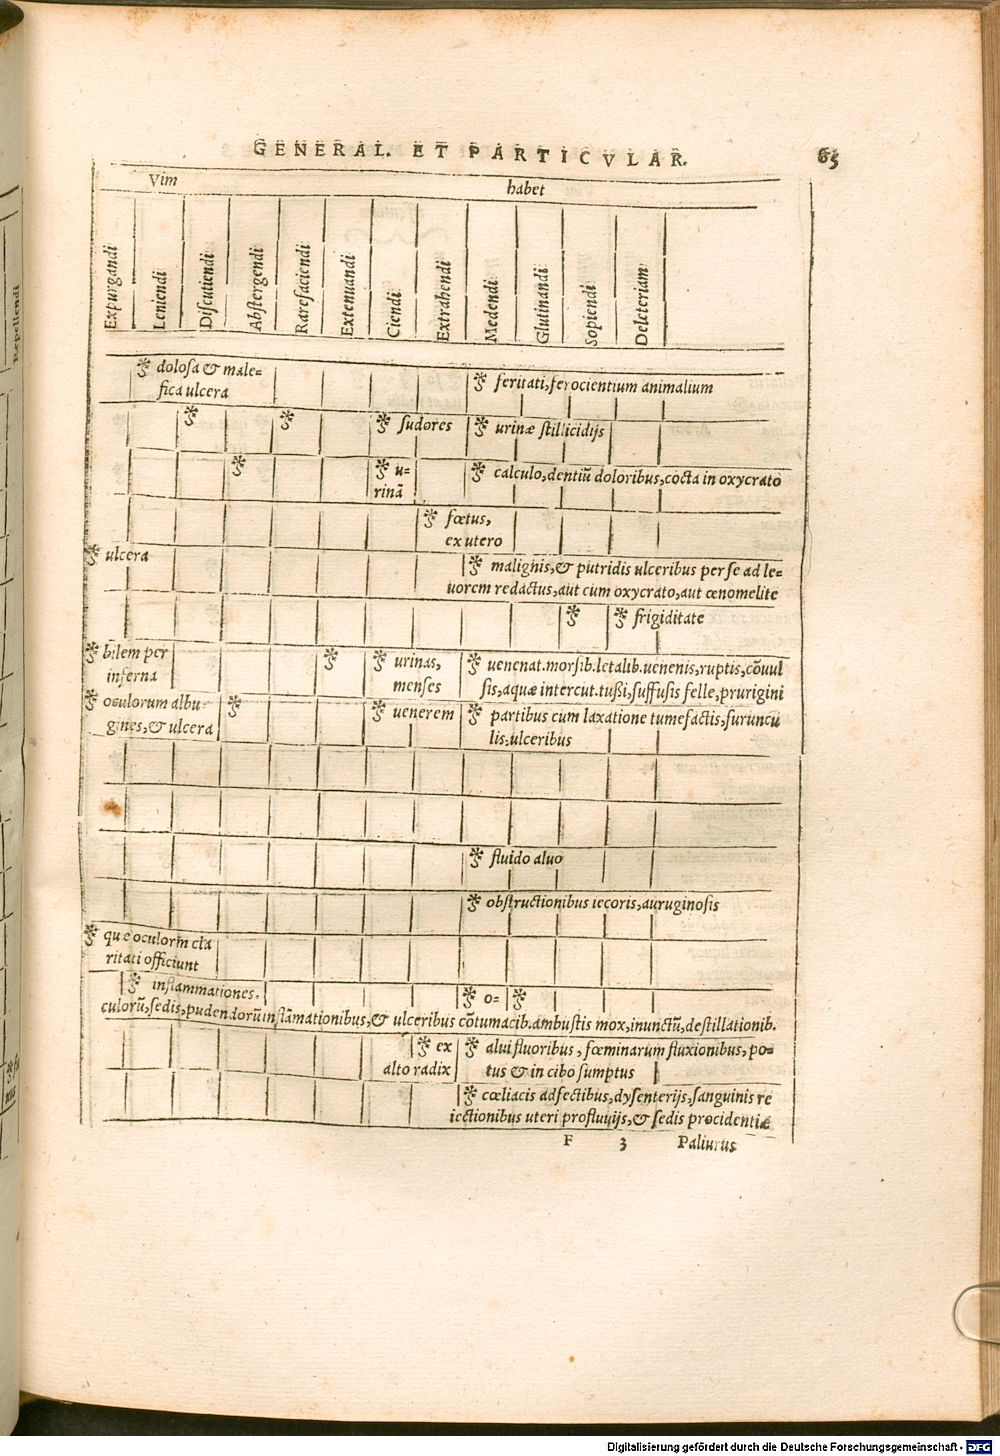 GENERAL. ET PARTICVLAR. 65
Vim habet
Expurgandi
Leniendi
Diſcutiendi
Abſtergendi
Rarefaciendi
Extenuandi
Ciendi
Extrahendi
Medendi
Glutinandi
Sopiendi
Deleteriam
doloſa & male=
fica ulcera
feritati, ferocientium animalium
ſudores
urinæ ſtillicidijs
u=
rinā
calculo, dentiū doloribus, cocta in oxycrato
fœtus,
ex utero
ulcera
malignis, & putridis ulceribus per ſe ad le=
uorem redactus, aut cum oxycrato, aut œnomelite
frigiditate
bilem per
inferna
urinas,
menſes
uenenat. morſib. letalib. uenenis, ruptis, cōuul
ſis, aquæ intercut. tußi, ſuffuſis felle, prurigini
oculorum albu-
gines, & ulcera
uenerem
partibus cum laxatione tumefactis, furuncu
lis, ulceribus
fluido aluo
obſtructionibus iecoris, auruginoſis
quæ oculorm cla
ritati officiunt
inflammationes.
o=
culorū, ſedis, pudendorū inflāmationibus, & ulceribus cōtumacib. ambuſtis mox, inunctū, deſtillationib.
ex
alto radix
alui fluoribus, fœminarum fluxionibus, po=
tus & in cibo ſumptus
cœliacis adfectibus, dyſenterijs, ſanguinis re
iectionibus uteri profluuijs, & ſedis procidentiæ
F 3 Paliurus
Repellendi
Digitalisierung gefördert durch die Deutsche Forschungsgemeinschaft - DFG